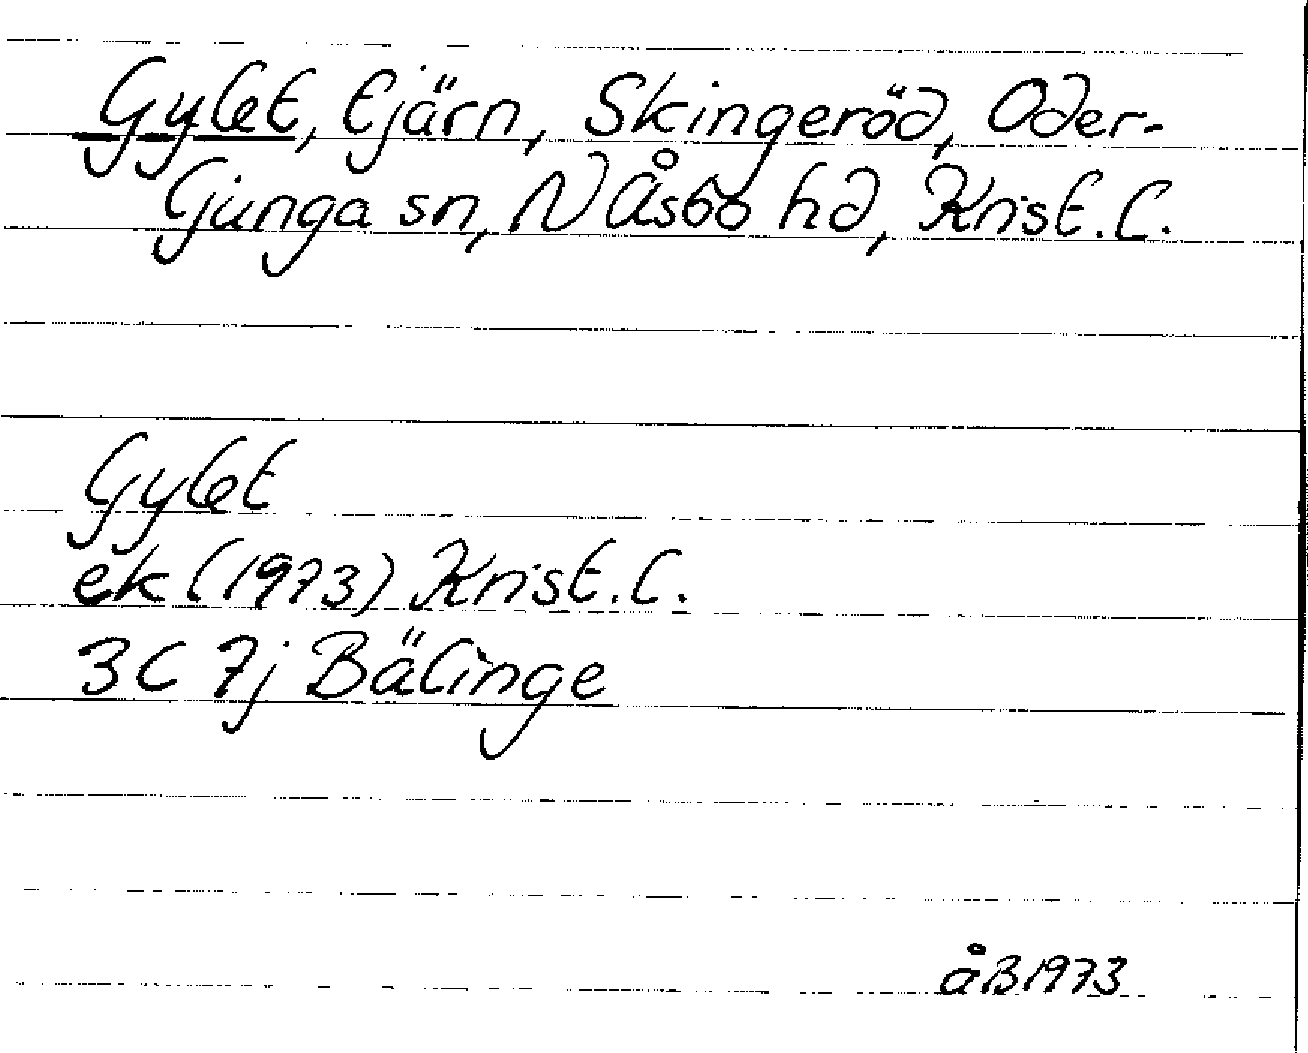 Gylet, tjärn, Skingeröd, Oder-
ljunga sn, N Åsbo hd, Krist. l.
Gylet
ek (1973) Krist. l.
3C 7j Bälinge
åB 1973